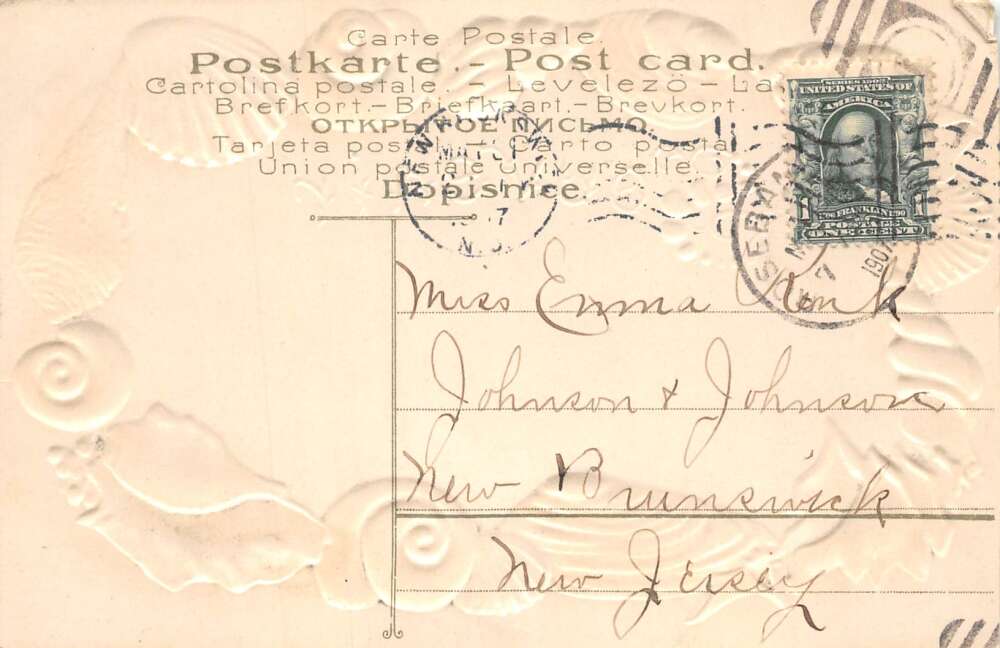 Carte Postale.
Postkarte. - Post card.
Cartolina postale. - Levelezö - La
Brefkort. - Briefkaart. - Brevkort.
ОТКРЫТОЕ ПИСЬМО.
Tarjeta postal - Carto posta
Union postale Universelle.
Dopisnice.
SERIES 1902
UNITED STATES OF
AMERICA
1706 FRANKLIN 1790
1 POSTAGE 1
ONE CENT
NEW
MAY
7
N.J.
MAY
7
1907
Miss Emma
Johnson & Johnson
New Brunswick
New Jersey